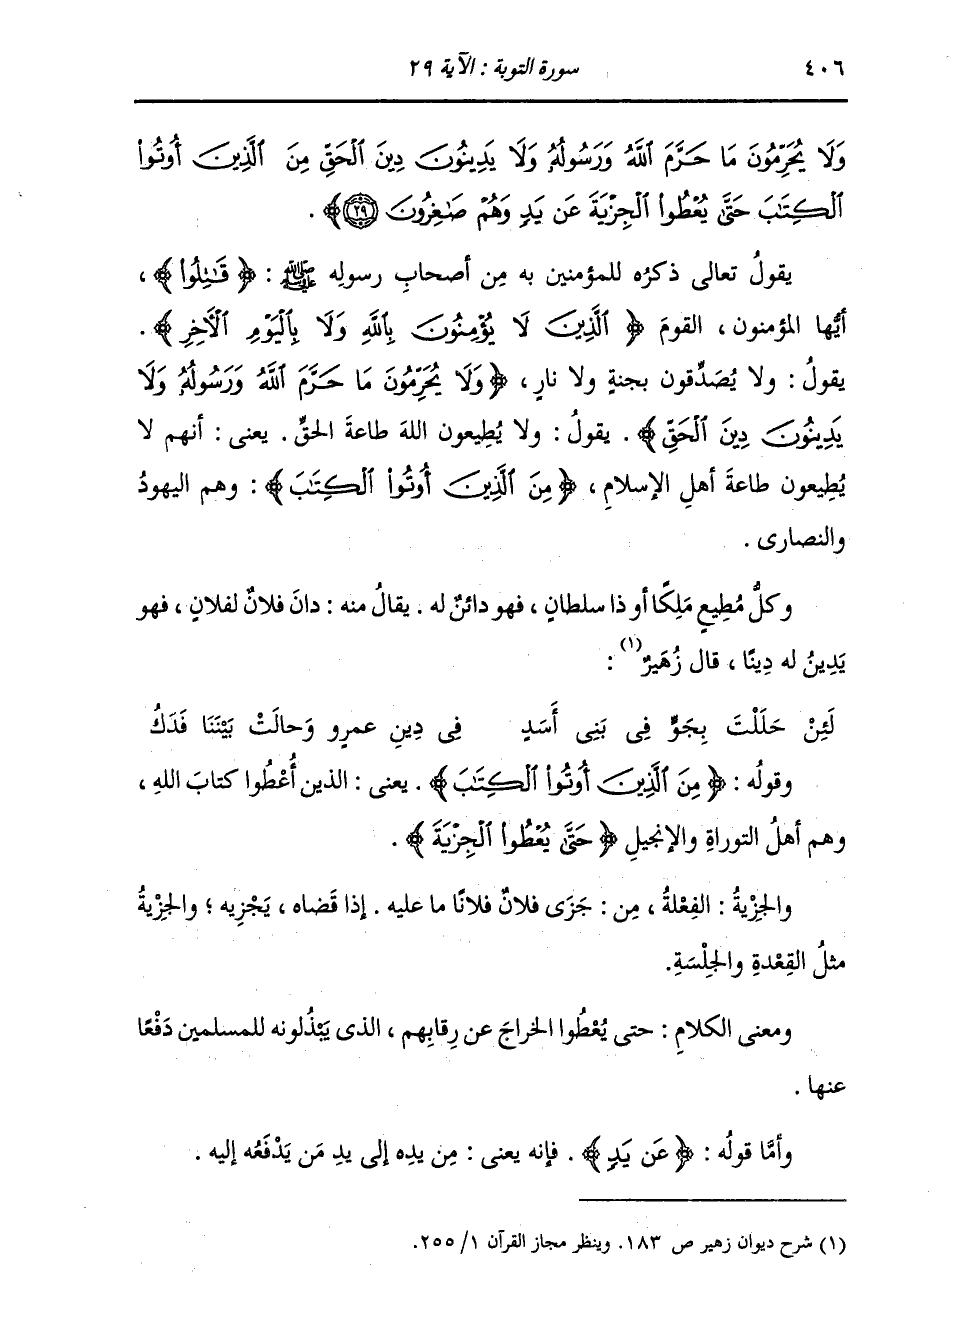 ٤٠٦ سورة التوبة : الآية ٢٩
وَلَا يُحَرِّمُونَ مَا حَرَّمَ ٱللَّهُ وَرَسُولُهُۥ وَلَا يَدِينُونَ دِينَ ٱلْحَقِّ مِنَ ٱلَّذِينَ أُوتُوا۟
ٱلْكِتَٰبَ حَتَّىٰ يُعْطُوا۟ ٱلْجِزْيَةَ عَن يَدٍ وَهُمْ صَٰغِرُونَ ﴿٢٩﴾ ﴾ .
يقولُ تعالى ذكرُه للمؤمنين به مِن أصحابِ رسولِه ﷺ : ﴿ قَٰتِلُوا۟ ﴾ ،
أيُّها المؤمنون ، القومَ ﴿ ٱلَّذِينَ لَا يُؤْمِنُونَ بِٱللَّهِ وَلَا بِٱلْيَوْمِ ٱلْأَخِرِ ﴾ .
يقولُ : ولا يُصَدِّقون بجنةٍ ولا نارٍ ، ﴿ وَلَا يُحَرِّمُونَ مَا حَرَّمَ ٱللَّهُ وَرَسُولُهُۥ وَلَا
يَدِينُونَ دِينَ ٱلْحَقِّ ﴾ . يقولُ : ولا يُطِيعون اللهَ طاعةَ الحقِّ . يعنى : أنهم لا
يُطِيعون طاعةَ أهلِ الإسلامِ ، ﴿ مِنَ ٱلَّذِينَ أُوتُوا۟ ٱلْكِتَٰبَ ﴾ : وهم اليهودُ
والنصارى .
وكلُّ مُطِيعٍ مَلِكًا أو ذا سلطانٍ ، فهو دائنٌ له . يقالُ منه : دانَ فلانٌ لفلانٍ ، فهو
يَدِينُ له دِينًا ، قال زُهَيرٌ(١) :
لَئِنْ حَلَلْتَ بِجَوٍّ فِى بَنِى أَسَدٍ فِى دِينِ عمرٍو وَحالَتْ بَيْنَنَا فَدَكُ
وقولُه : ﴿ مِنَ ٱلَّذِينَ أُوتُوا۟ ٱلْكِتَٰبَ ﴾ . يعنى : الذين أُعْطُوا كتابَ اللهِ ،
وهم أهلُ التوراةِ والإنجيلِ ﴿ حَتَّىٰ يُعْطُوا۟ ٱلْجِزْيَةَ ﴾ .
والجِزْيةُ : الفِعْلةُ ، مِن : جَزَى فلانٌ فلانًا ما عليه . إذا قَضاه ، يَجْزِيه ؛ والجِزْيةُ
مثلُ القِعْدةِ والجِلْسَةِ.
ومعنى الكلامِ : حتى يُعْطُوا الخراجَ عن رِقابِهم ، الذى يَبْذُلونه للمسلمين دَفْعًا
عنها .
وأمَّا قولُه : ﴿ عَن يَدٍ ﴾ . فإنه يعنى : مِن يدِه إلى يدِ مَن يَدْفَعُه إليه .
(١) شرح ديوان زهير ص ١٨٣. وينظر مجاز القرآن ١/ ٢٥٥.